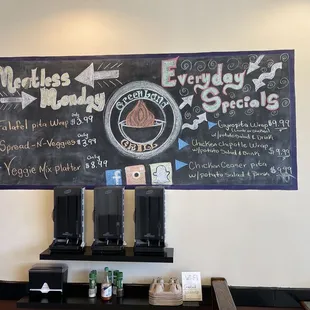 Meatless
Monday
Falafel pita Wrap only $3.99
Spread-N-Veggies only $3.99
Veggie Mix platter only $8.49
GreenLand
GRILL
Everyday
Specials
Gyropita Wrap $9.99
w/potato Salad & Drink
Chicken Chipotle Wrap $9.99
w/potato Salad & Drink
Chicken Ceaner pita
w/potato salad & Drink $9.99